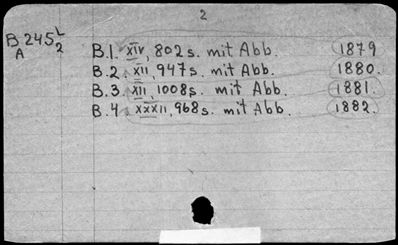 2
B 245 L/2
A
B.1. XIV, 802s. mit Abb. 1879
B.2. XII, 947s. mit Abb. 1880.
B.3. XII, 1008s. mit Abb. 1881.
B.4. XXXII, 968s. mit Abb. 1882.